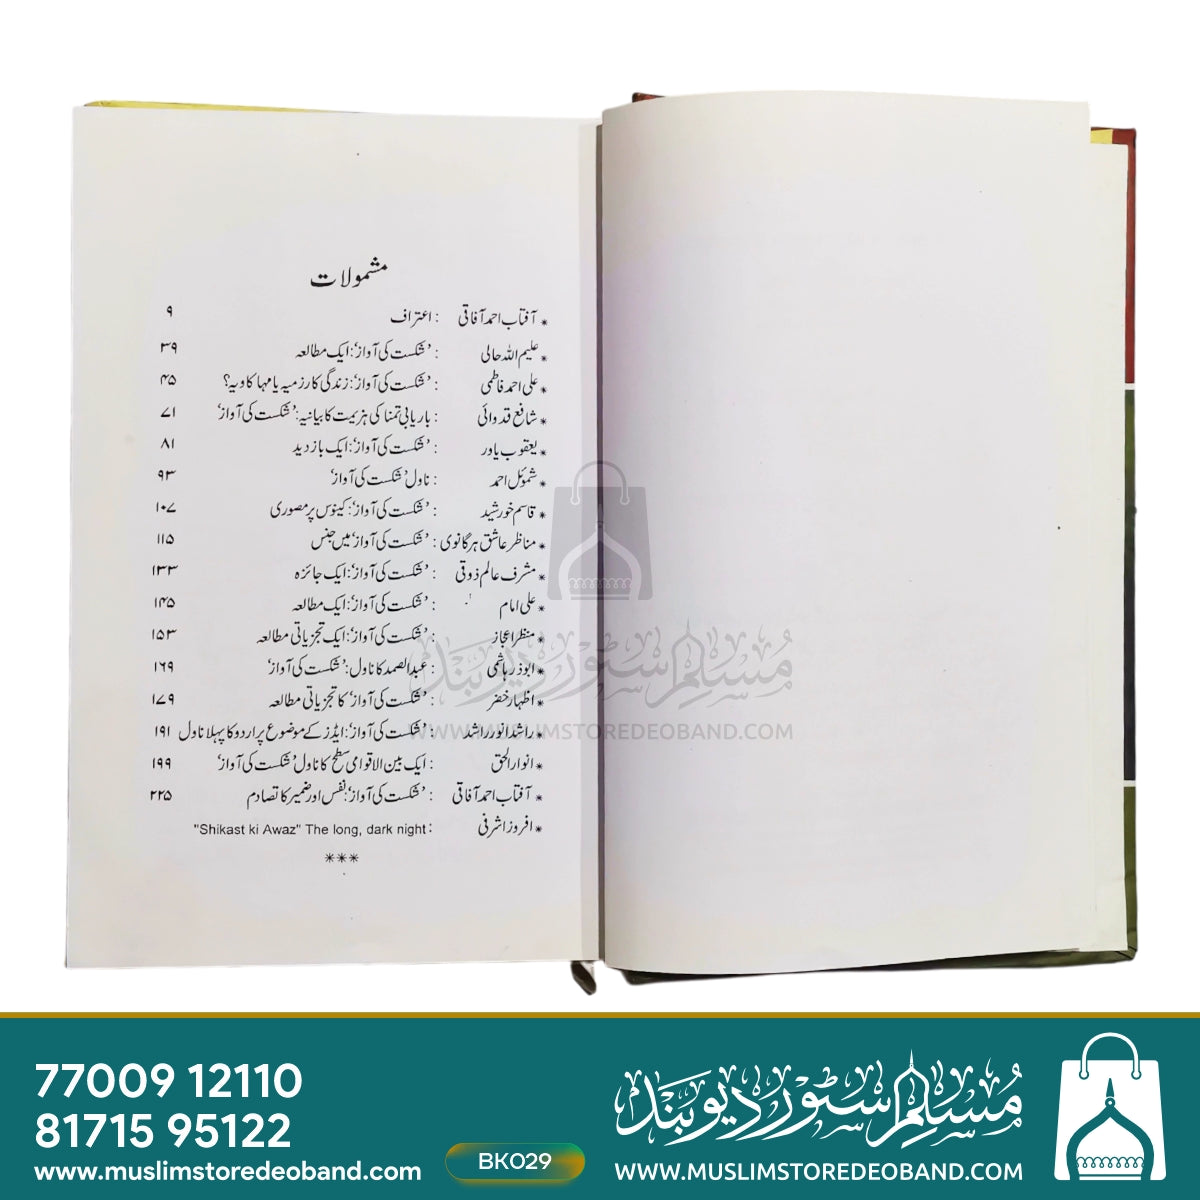 مشمولات
* آفتاب احمد آفاقی : اعتراف ۹
* علیم اللہ حالی : ’شکست کی آواز‘: ایک مطالعہ ۳۹
* علی احمد فاطمی : ’شکست کی آواز‘: زندگی کا رزمیہ یا مہا کاویہ؟ ۴۵
* شافع قدوائی : باریابیِ تمنا کی ہزیمت کا بیانیہ: ’شکست کی آواز‘ ۷۱
* یعقوب یاور : ’شکست کی آواز‘: ایک بازدید ۸۱
* شموئل احمد : ناول ’شکست کی آواز‘ ۹۳
* قاسم خورشید : ’شکست کی آواز‘: کینوس پر مصوری ۱۰۷
* مناظر عاشق ہرگانوی : ’شکست کی آواز‘ میں جنس ۱۱۵
* مشرف عالم ذوقی : ’شکست کی آواز‘: ایک جائزہ ۱۳۳
* علی امام : ’شکست کی آواز‘: ایک مطالعہ ۱۴۵
* منظر اعجاز : ’شکست کی آواز‘: ایک تجزیاتی مطالعہ ۱۵۳
* ابوذر ہاشمی : عبدالصمد کا ناول: ’شکست کی آواز‘ ۱۶۹
* اظہار خضر : ’شکست کی آواز‘ کا تجزیاتی مطالعہ ۱۷۹
* راشد انور راشد : ’شکست کی آواز‘: ایڈز کے موضوع پر اردو کا پہلا ناول ۱۹۱
* انوار الحق : ایک بین الاقوامی سطح کا ناول ’شکست کی آواز‘ ۱۹۹
* آفتاب احمد آفاقی : ’شکست کی آواز‘: نفس اور ضمیر کا تصادم ۲۲۵
* افروز اشرفی : "Shikast ki Awaz" The long, dark night
***
مسلم سٹور دیوبند
WWW.MUSLIMSTOREDEOBAND.COM
77009 12110
81715 95122
www.muslimstoredeoband.com
BK029
مسلم سٹور دیوبند
WWW.MUSLIMSTOREDEOBAND.COM